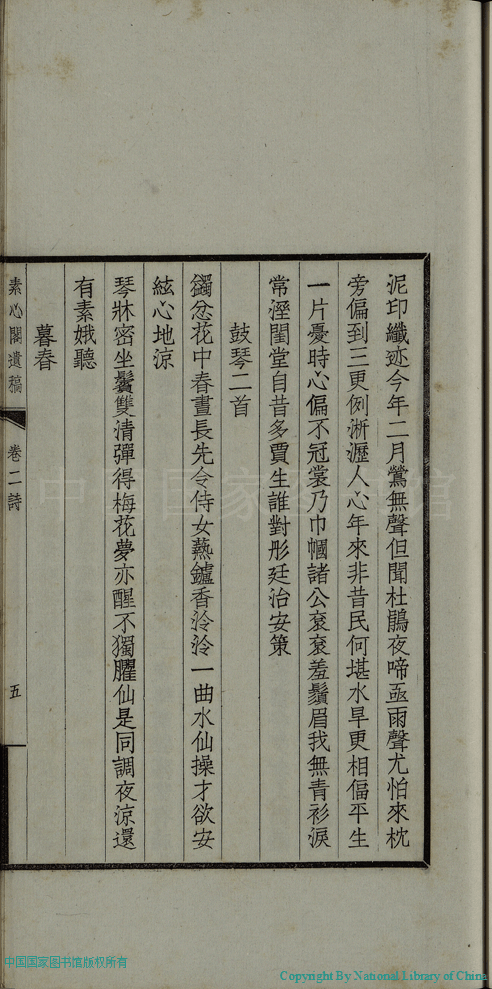 泥印纖迹今年二月鶯無聲但聞杜鵑夜啼亟雨聲尤怕來枕
旁偏到三更例淅瀝人心年來非昔民何堪水旱更相偪平生
一片憂時心偏不冠裳乃巾幗諸公袞袞羞鬚眉我無青衫淚
常溼閨堂自昔多賈生誰對彤廷治安策
鼓琴二首
蠲忿花中春晝長先令侍女爇鑪香泠泠一曲水仙操才欲安
絃心地涼
琴牀密坐鬢雙清彈得梅花夢亦醒不獨臞仙是同調夜涼還
有素娥聽
暮春
素心閣遺稿
卷二詩
五
中国国家图书馆
中国国家图书馆版权所有
Copyright By National Library of China